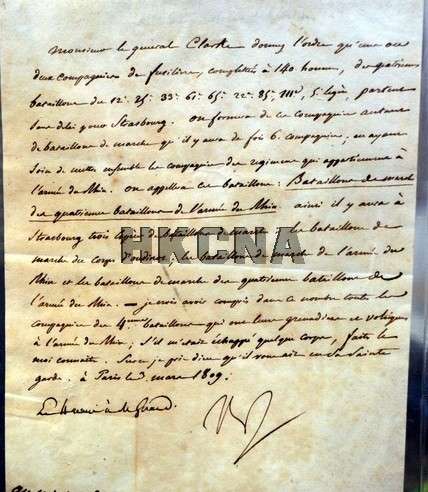 Monsieur le general Clarke donnez l'ordre qu'une ou
deux compagnies de fusiliers, complettés à 140 hommes, des quatrièmes
bataillons du 12e 25e 33e 61e 65e 22e 85e 111e, 5e ligne, partent
sans delai pour Strasbourg. On formera de ces compagnies autant
de bataillons de marche qu'il y aura de fois 6 compagnies, en ayant
soin de mettre ensemble les compagnies des regimens qui appartiennent à
l'armée du Rhin. On appellera ces bataillons: Bataillons de marche
des quatriemes bataillons de l'armée du Rhin ainsi il y aura à
Strasbourg trois bataillons de marche. le bataillon de
marche du corps d'Oudinot, le bataillon de marche de l'armée du
Rhin et les bataillons de marche des quatriemes bataillons de
l'armée du Rhin. — je crois avoir compris dans ce nombre toutes les
compagnies des 4emes bataillons qui ont leurs grenadiers et voltigeurs
à l'armée du Rhin; S'il m'était échappé quelque corps, faites le
moi connaitre. Sur ce je prie dieu qu'il vous ait en sa Sainte
garde. à Paris le 3 mars 1809.
HKCNA